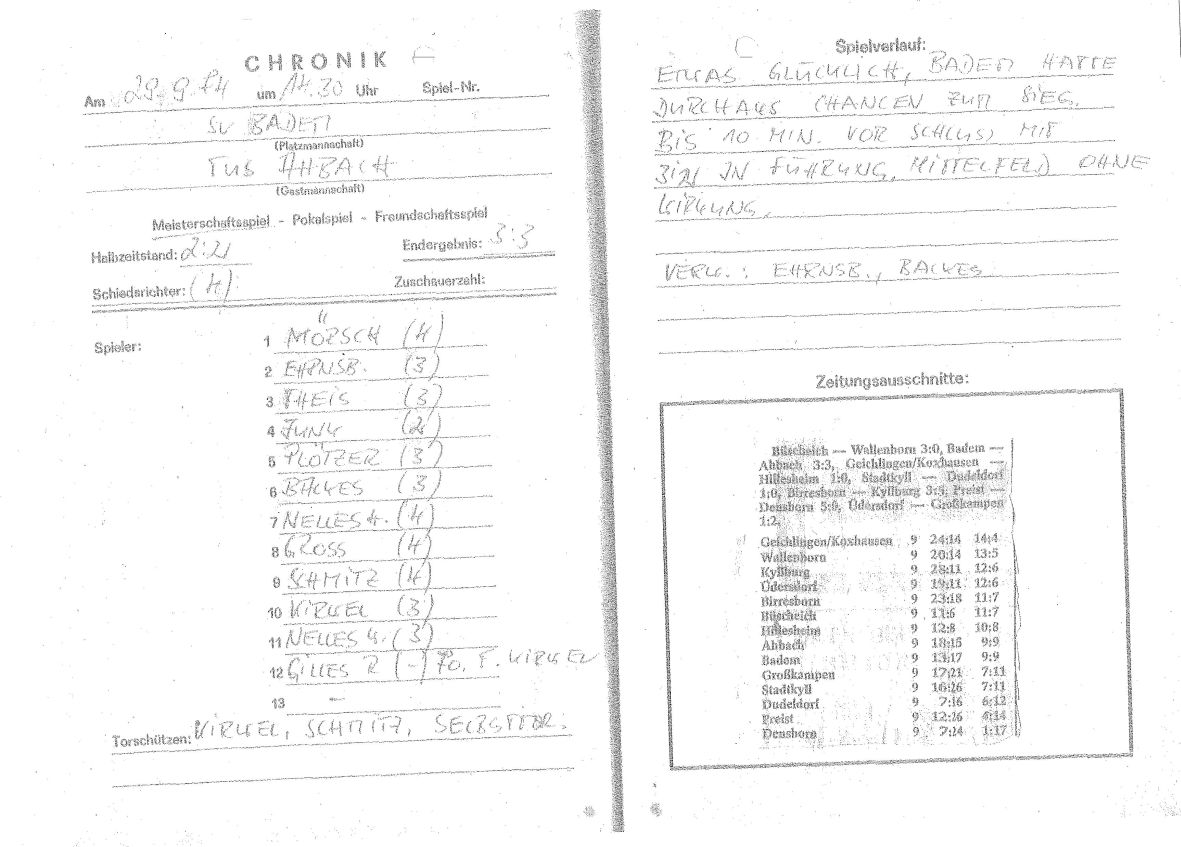 CHRONIK
Am 29.9.74 um 14.30 Uhr Spiel-Nr.
SV BADEM
(Platzmannschaft)
TUS AHBACH
(Gastmannschaft)
Meisterschaftsspiel - Pokalspiel - Freundschaftsspiel
Halbzeitstand: 2:2 Endergebnis: 3:3
Schiedsrichter: (4) Zuschauerzahl:
Spieler:
1 MÖRSCH (4)
2 EHRNSB. (3)
3 THEIS (3)
4 JUNK (2)
5 PLÖTZER (3)
6 BACKES (3)
7 NELLES (4)
8 GROSS (4)
9 SCHMITZ (4)
10 KIRKEL (3)
11 NELLES (3)
12 GILLES R (-) 70. F. KIRKEL
13 -
Torschützen: KIRKEL, SCHMITZ, SELBSTTOR.
Spielverlauf:
ETWAS GLÜCKLICH, BADEM HATTE
DURCHAUS CHANCEN ZUM SIEG.
BIS 10 MIN. VOR SCHLUSS MIT
3:2 IN FÜHRUNG, MITTELFELD OHNE
WIRKUNG.
VERW.: EHRNSB., BACKES
Zeitungsausschnitte:
Büscheich — Wallenborn 3:0, Badem —
Ahbach 3:3, Geichlingen/Koxhausen —
Hillesheim 1:0, Stadtkyll — Dudeldorf
1:0, Birresborn — Kyllburg 3:5, Preist —
Densborn 5:0, Üdersdorf — Großkampen
1:2.
Geichlingen/Koxhausen 9 24:14 14:4
Wallenborn 9 20:14 13:5
Kyllburg 9 28:11 12:6
Üdersdorf 9 19:11 12:6
Birresborn 9 23:18 11:7
Büscheich 9 11:6 11:7
Hillesheim 9 12:8 10:8
Ahbach 9 18:15 9:9
Badem 9 13:17 9:9
Großkampen 9 17:21 7:11
Stadtkyll 9 16:26 7:11
Dudeldorf 9 7:16 6:12
Preist 9 12:26 4:14
Densborn 9 7:24 1:17